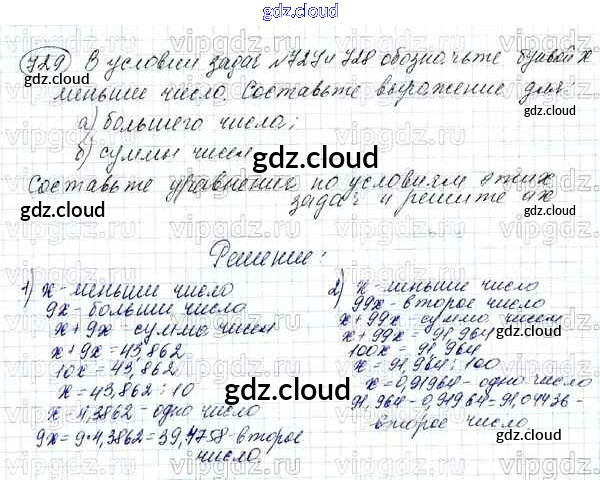 gdz.cloud
729 В условии задач №727 и 728 обозначьте буквой x
меньшее число. Составьте выражение для:
а) большего числа;
б) суммы чисел
Составьте уравнение по условиям этих
задач и решите их
Решение:
1) x - меньшее число
9x - большее число
x + 9x - сумма чисел
x + 9x = 43,862
10x = 43,862
x = 43,862 : 10
x = 4,3862 - одно число
9x = 9 • 4,3862 = 39,4758 - второе
число.
2) x - меньшее число
99x - второе число
x + 99x - сумма чисел
x + 99x = 91,964
100x = 91,964
x = 91,964 : 100
x = 0,91964 - одно число
91,964 - 0,91964 = 91,04436 -
второе число
gdz.cloud
gdz.cloud
gdz.cloud
gdz.cloud
gdz.cloud
gdz.cloud
gdz.cloud
gdz.cloud
gdz.cloud